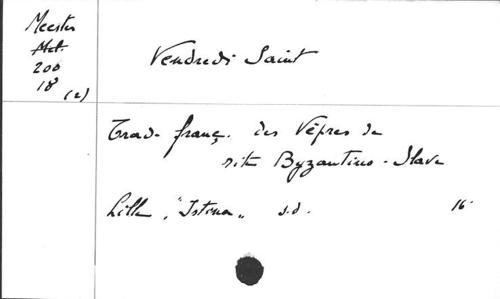 Meester
Mel.
200
18
(2)
Vendredi Saint
Trad. franç. des Vêpres du
rite Byzantino-Slave
Lille, "Istina" s.d. 16